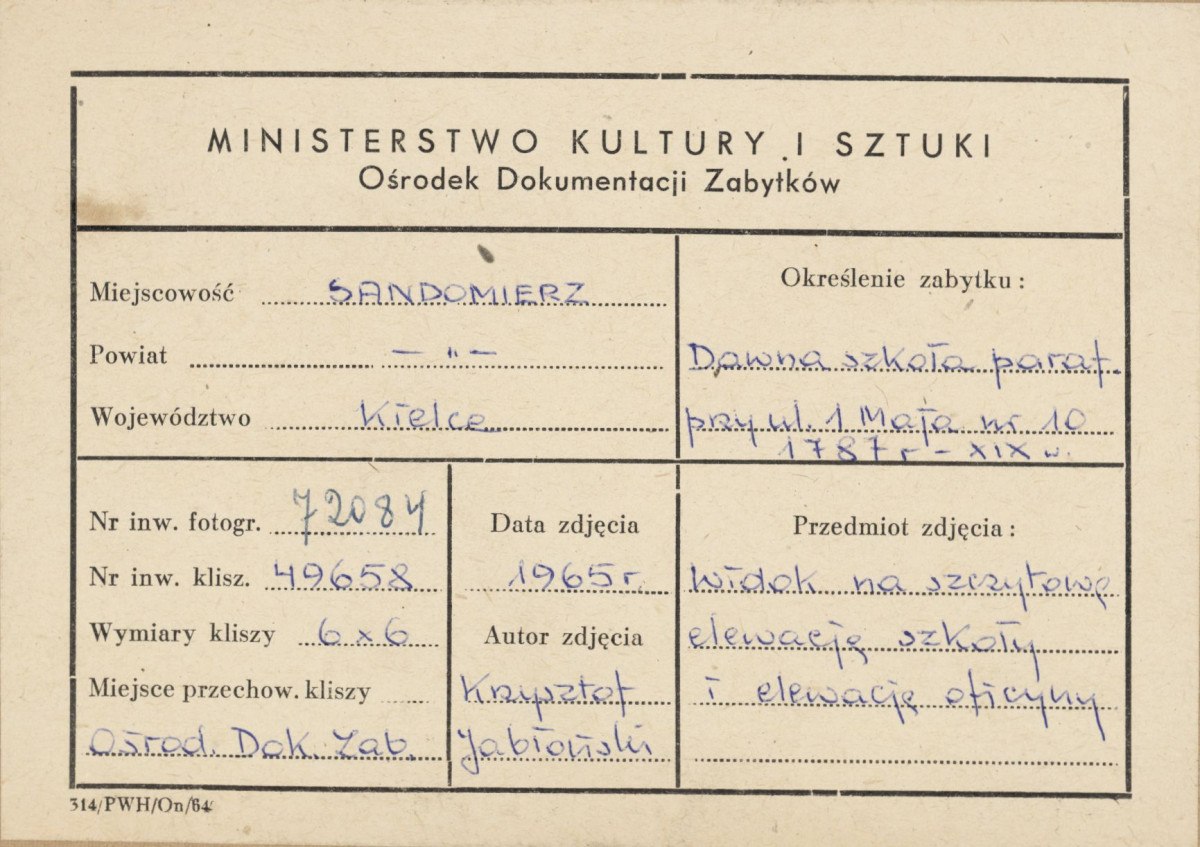 MINISTERSTWO KULTURY I SZTUKI
Ośrodek Dokumentacji Zabytków
Miejscowość SANDOMIERZ
Powiat — „ —
Województwo Kielce
Określenie zabytku:
Dawna szkoła paraf.
przy ul. 1 Maja nr 10
1787 r – XIX w.
Nr inw. fotogr. 72084
Nr inw. klisz. 49658
Wymiary kliszy 6x6
Miejsce przechow. kliszy
Ośrod. Dok. Zab.
Data zdjęcia
1965 r.
Autor zdjęcia
Krzysztof
Jabłoński
Przedmiot zdjęcia:
Widok na szczytową
elewację szkoły
i elewację oficyny
314/PWH/On/64